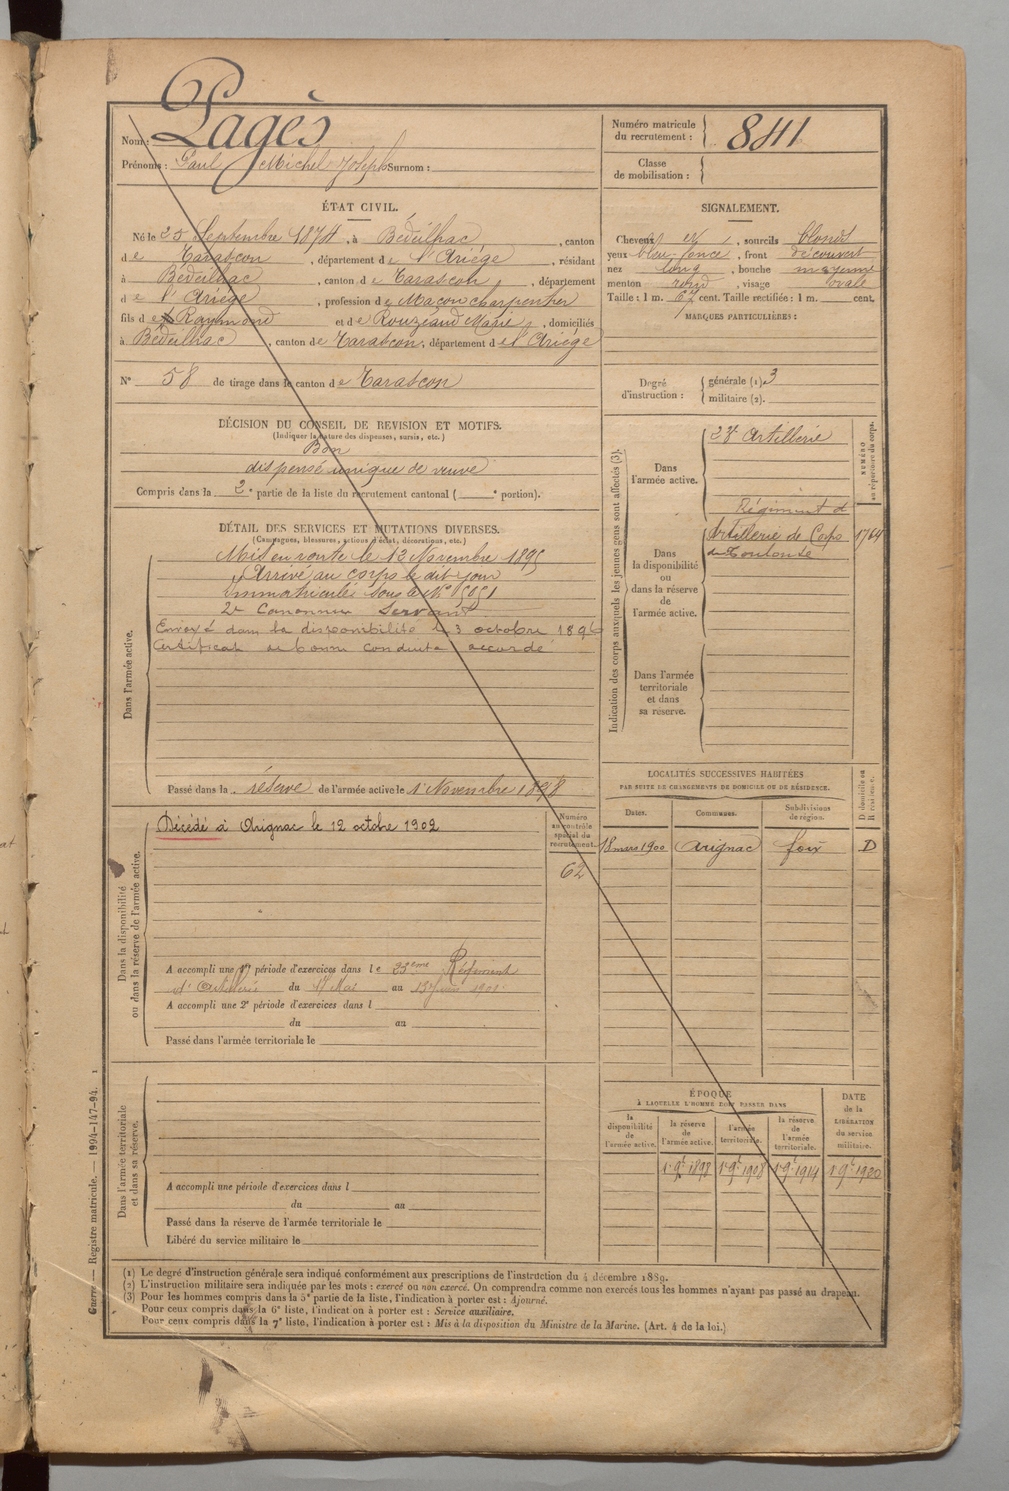 Nom : Pagès
Prénoms : Paul Michel Joseph Surnom :
Numéro matricule du recrutement : 841
Classe de mobilisation :
ÉTAT CIVIL.
Né le 25 Septembre 1874, à Bédeilhac, canton
de Tarascon, département de l'Ariège, résidant
à Bédeilhac, canton de Tarascon, département
de l'Ariège, profession de Maçon charpentier
fils de Raymond et de Rouzeaud Marie, domiciliés
à Bédeilhac, canton de Tarascon, département de l'Ariège
N° 58 de tirage dans le canton de Tarascon
SIGNALEMENT.
Cheveux et, sourcils blonds
yeux bleu foncé, front découvert
nez long, bouche moyenne
menton rond, visage ovale
Taille : 1 m. 67 cent. Taille rectifiée : 1 m. cent.
MARQUES PARTICULIÈRES :
Degré d'instruction : générale (1) 3
militaire (2).
DÉCISION DU CONSEIL DE REVISION ET MOTIFS.
(Indiquer la nature des dispenses, sursis, etc.)
Bon
dispensé unique de veuve
Compris dans la 2e partie de la liste du recrutement cantonal ( e portion).
DÉTAIL DES SERVICES ET MUTATIONS DIVERSES.
(Campagnes, blessures, actions d'éclat, décorations, etc.)
Dans l'armée active.
Mis en route le 12 Novembre 1895
Arrivé au corps le dit jour
Immatriculé sous le N° 5051
2e Canonnier Servant
Envoyé dans la disponibilité le 3 octobre 1896
Certificat de bonne conduite accordé
Passé dans la réserve de l'armée active le 1er Novembre 1898
Indication des corps auxquels les jeunes gens sont affectés (3).
NUMÉRO au répertoire du corps.
Dans l'armée active.
23e Artillerie
Dans la disponibilité ou dans la réserve de l'armée active.
Régiment d
Artillerie de Corps 1764
de Toulouse
Dans l'armée territoriale et dans sa réserve.
LOCALITÉS SUCCESSIVES HABITÉES
PAR SUITE DE CHANGEMENTS DE DOMICILE OU DE RÉSIDENCE.
Dates. Communes. Subdivisions de région. D domicile ou R résidence.
18 mars 1900 Arignac foix D
Dans la disponibilité ou dans la réserve de l'armée active.
Numéro au contrôle spécial du recrutement.
62
Décédé à Arignac le 12 octobre 1902
A accompli une 1re période d'exercices dans le 23eme Régiment
d'Artillerie du 17 Mai au 13 Juin 1901
A accompli une 2e période d'exercices dans l
du au
Passé dans l'armée territoriale le
Dans l'armée territoriale et dans sa réserve.
A accompli une période d'exercices dans l
du au
Passé dans la réserve de l'armée territoriale le
Libéré du service militaire le
ÉPOQUE
À LAQUELLE L'HOMME DOIT PASSER DANS
la disponibilité de l'armée active. la réserve de l'armée active. l'armée territoriale. la réserve de l'armée territoriale. DATE de la LIBÉRATION du service militaire.
1er 9bre 1898 1er 9bre 1908 1er 9bre 1914 1er 9bre 1920
(1) Le degré d'instruction générale sera indiqué conformément aux prescriptions de l'instruction du 4 décembre 1889.
(2) L'instruction militaire sera indiquée par les mots : exercé ou non exercé. On comprendra comme non exercés tous les hommes n'ayant pas passé au drapeau.
(3) Pour les hommes compris dans la 5e partie de la liste, l'indication à porter est : Ajourné.
Pour ceux compris dans la 6e liste, l'indication à porter est : Service auxiliaire.
Pour ceux compris dans la 7e liste, l'indication à porter est : Mis à la disposition du Ministre de la Marine. (Art. 4 de la loi.)
Guerre. — Registre matricule. — 1994-147-94. 1